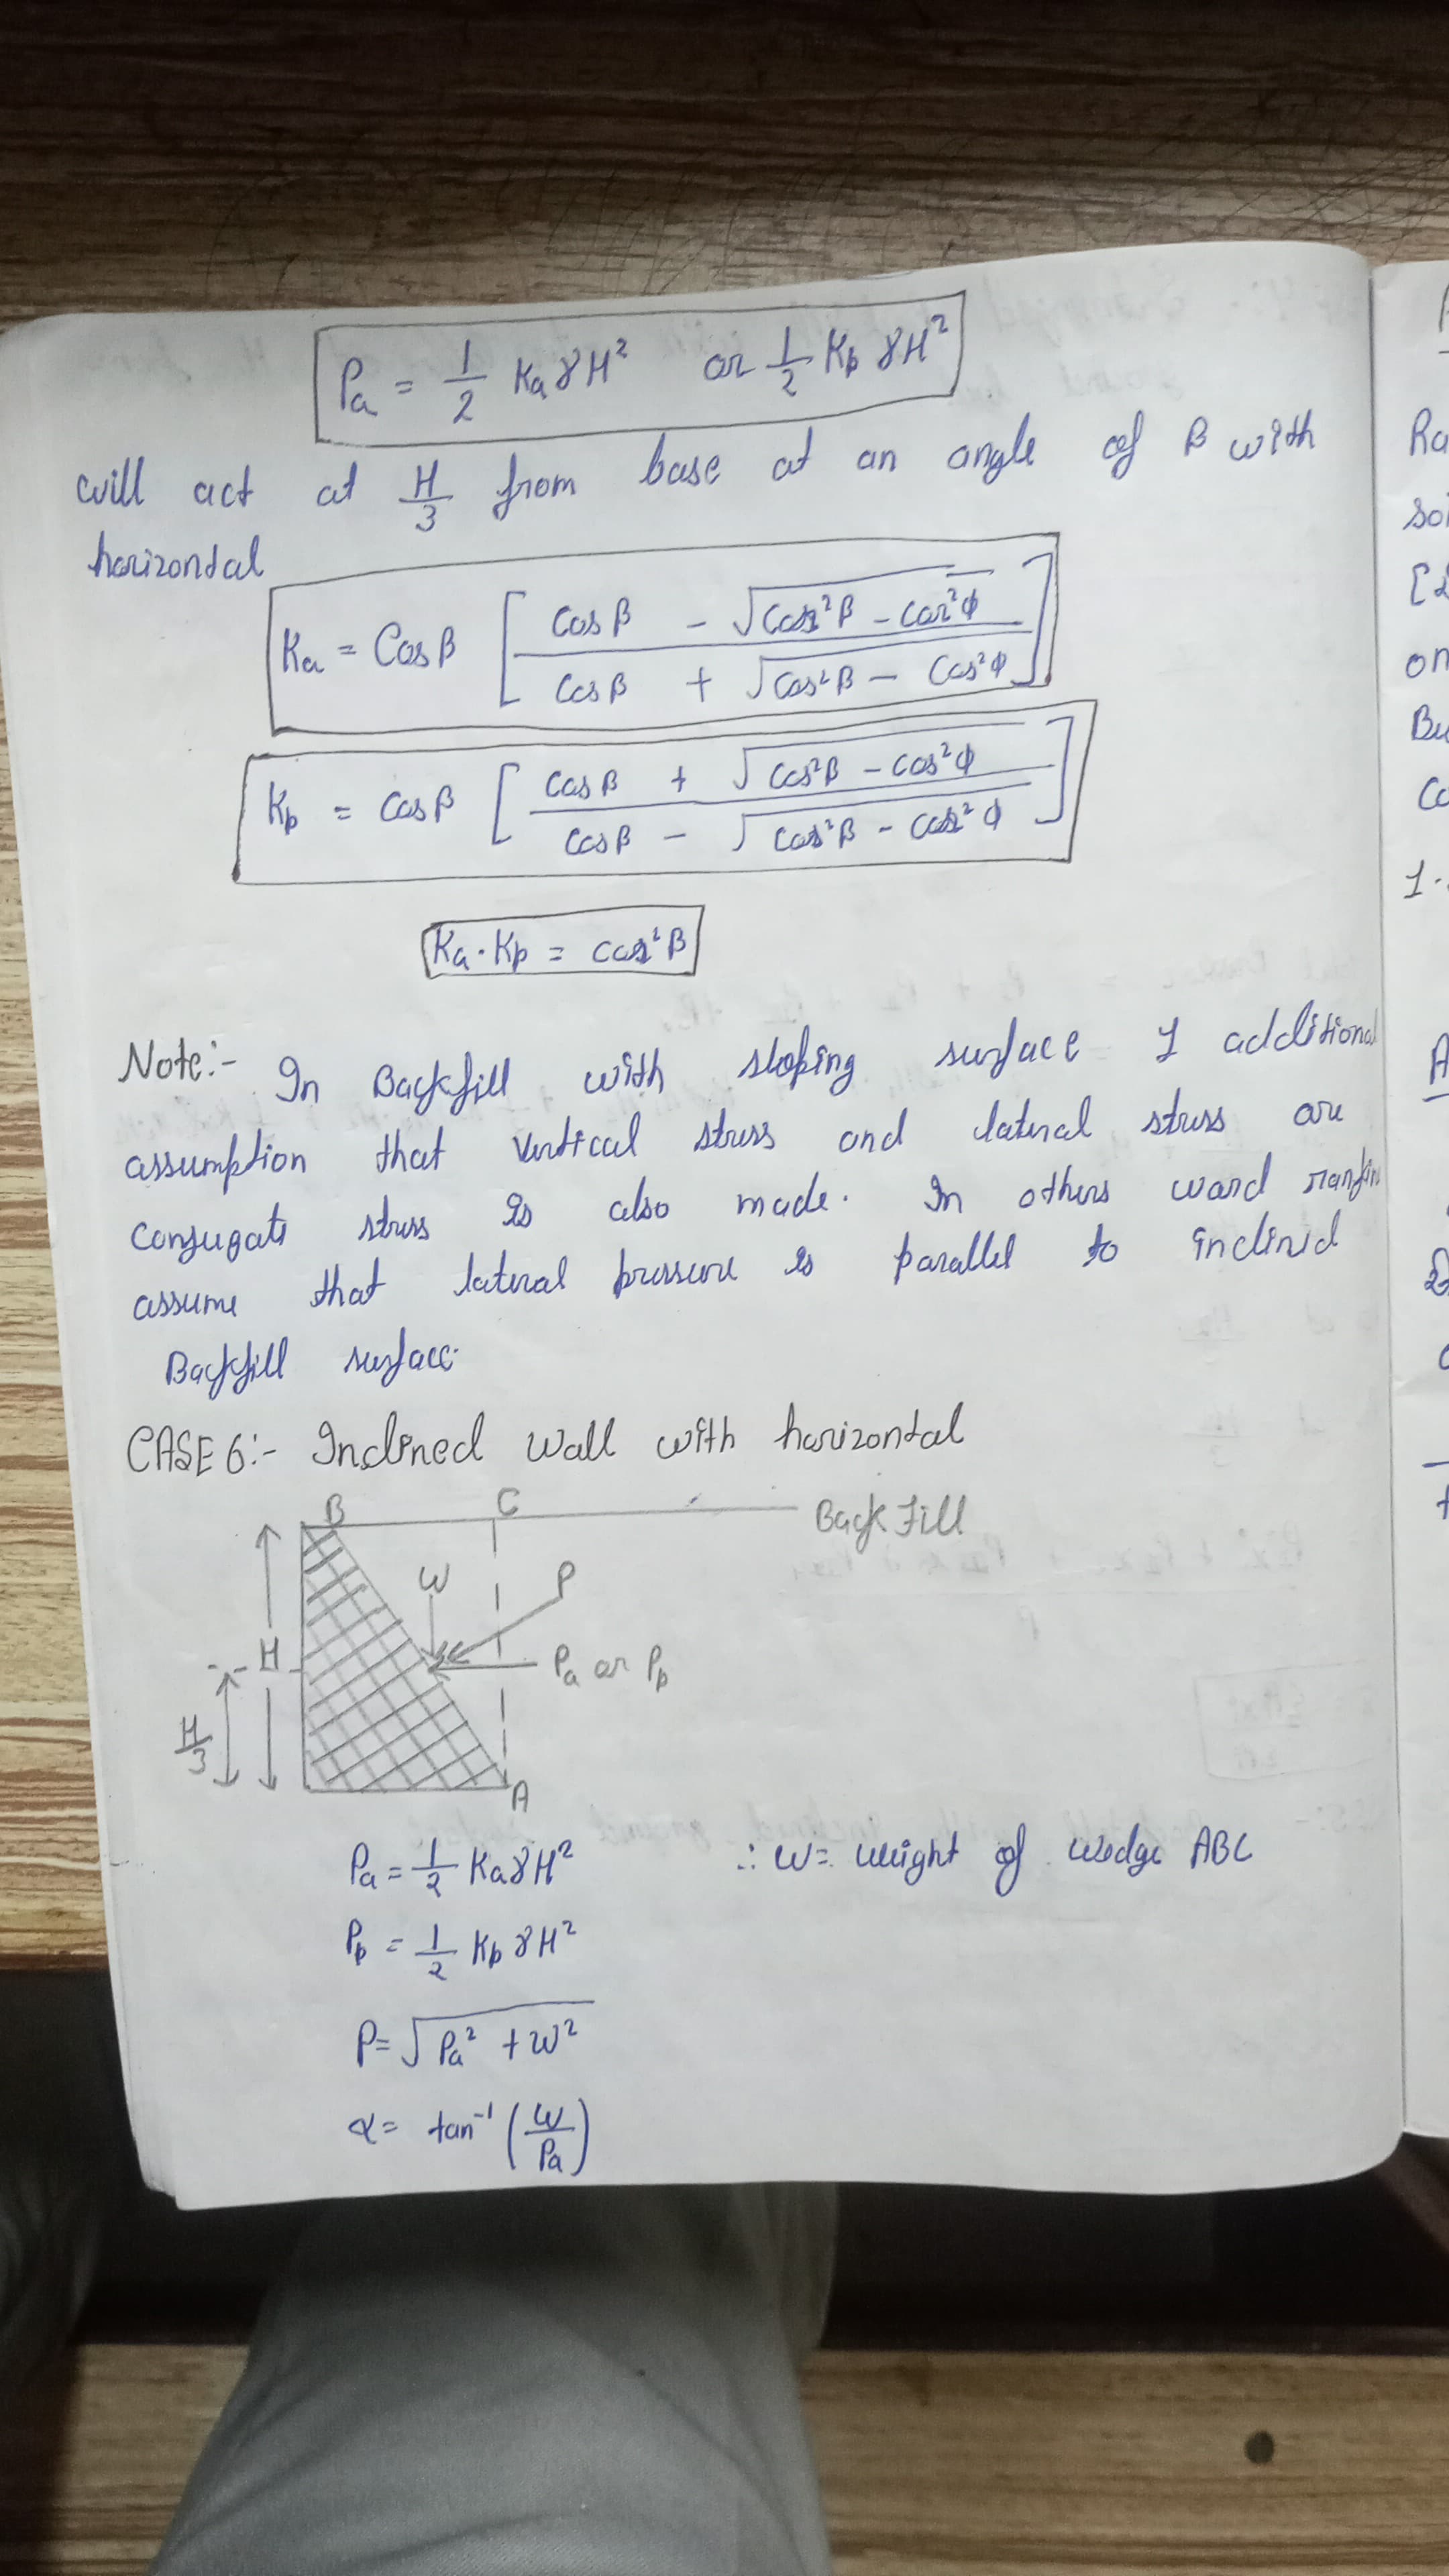 Pa = 1/2 Ka γH² or 1/2 Kp γH²
will act at H/3 from base at an angle of β with
horizontal
Ka = Cosβ [ (Cosβ - √(Cos²β - Cos²Φ)) / (Cosβ + √(Cos²β - Cos²Φ)) ]
Kp = Cosβ [ (Cosβ + √(Cos²β - Cos²Φ)) / (Cosβ - √(Cos²β - Cos²Φ)) ]
Ka · Kp = Cos²β
Note:- In Backfill with sloping surface 1 additional
assumption that vertical stress and lateral stress are
conjugate stress is also made. In others word rankin
assume that lateral pressure is parallel to inclined
Backfill surface.
CASE 6:- Inclined Wall with horizontal
B C Back Fill
W P
H Pa or Pp
H/3
A
Pa = 1/2 Ka γH² ∴ W = weight of wedge ABC
Pp = 1/2 Kp γH²
P = √(Pa² + W²)
α = tan⁻¹ (W/Pa)
Ra
on
1.
A